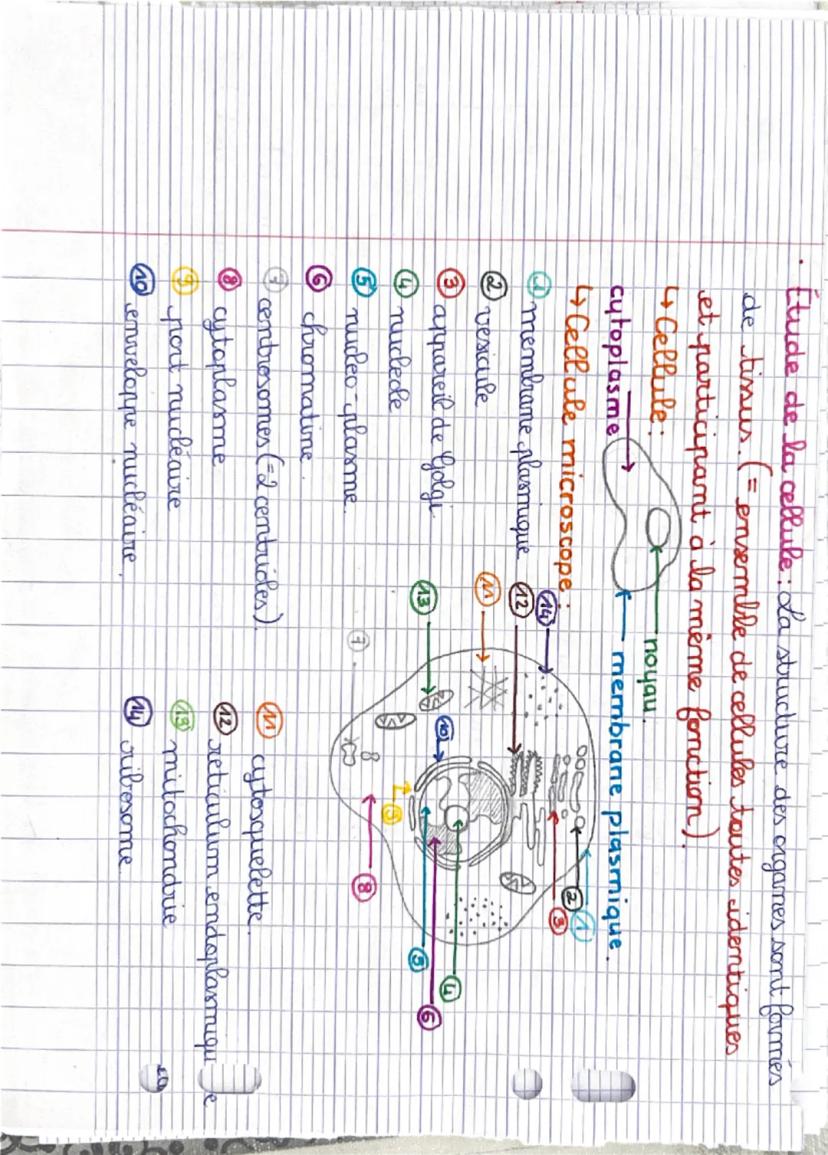 . Étude de la cellule : La structure des organes sont formés
de tissus. (= ensemble de cellules toutes identiques
et participant à la même fonction).
↳ Cellule :
noyau.
cytoplasme
membrane plasmique.
↳ Cellule microscope :
① membrane plasmique
② vesicule
③ appareil de Golgi
④ nucleole
⑤ nucleo-plasme.
⑥ chromatine
⑦ centrosomes (= 2 centrioles).
⑧ cytoplasme
⑨ port nucléaire
⑩ enveloppe nucléaire.
⑪ cytosquelette.
⑫ reticulum endoplasmique
⑬ mitochondrie
⑭ ribosome.
⑭
⑫
⑪
⑬
⑦
⑩
⑨
⑧
①
②
③
④
⑤
⑥